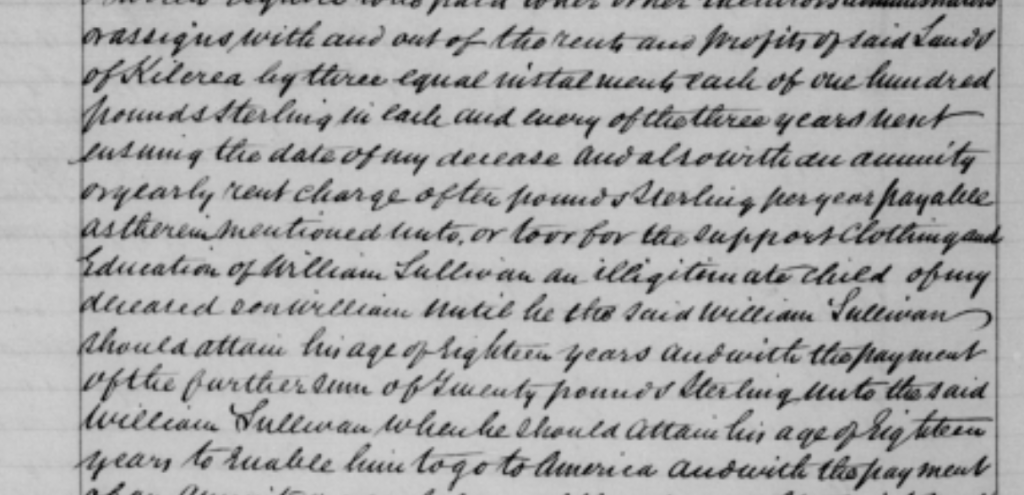 or assigns with and out of the rents and profits of said Lands
of Kilcrea by three equal instalments each of one hundred
pounds Sterling in each and every of the three years next
ensuing the date of my decease and also with an annuity
or yearly rent charge of ten pounds Sterling per year payable
as therein mentioned unto, or to or for the support Clothing and
Education of William Sullivan an illigitimate child of my
deceased son William until he the said William Sullivan
should attain his age of Eighteen years and with the payment
of the further sum of Twenty pounds Sterling unto the said
William Sullivan when he should attain his age of Eighteen
years to Enable him to go to America and with the payment